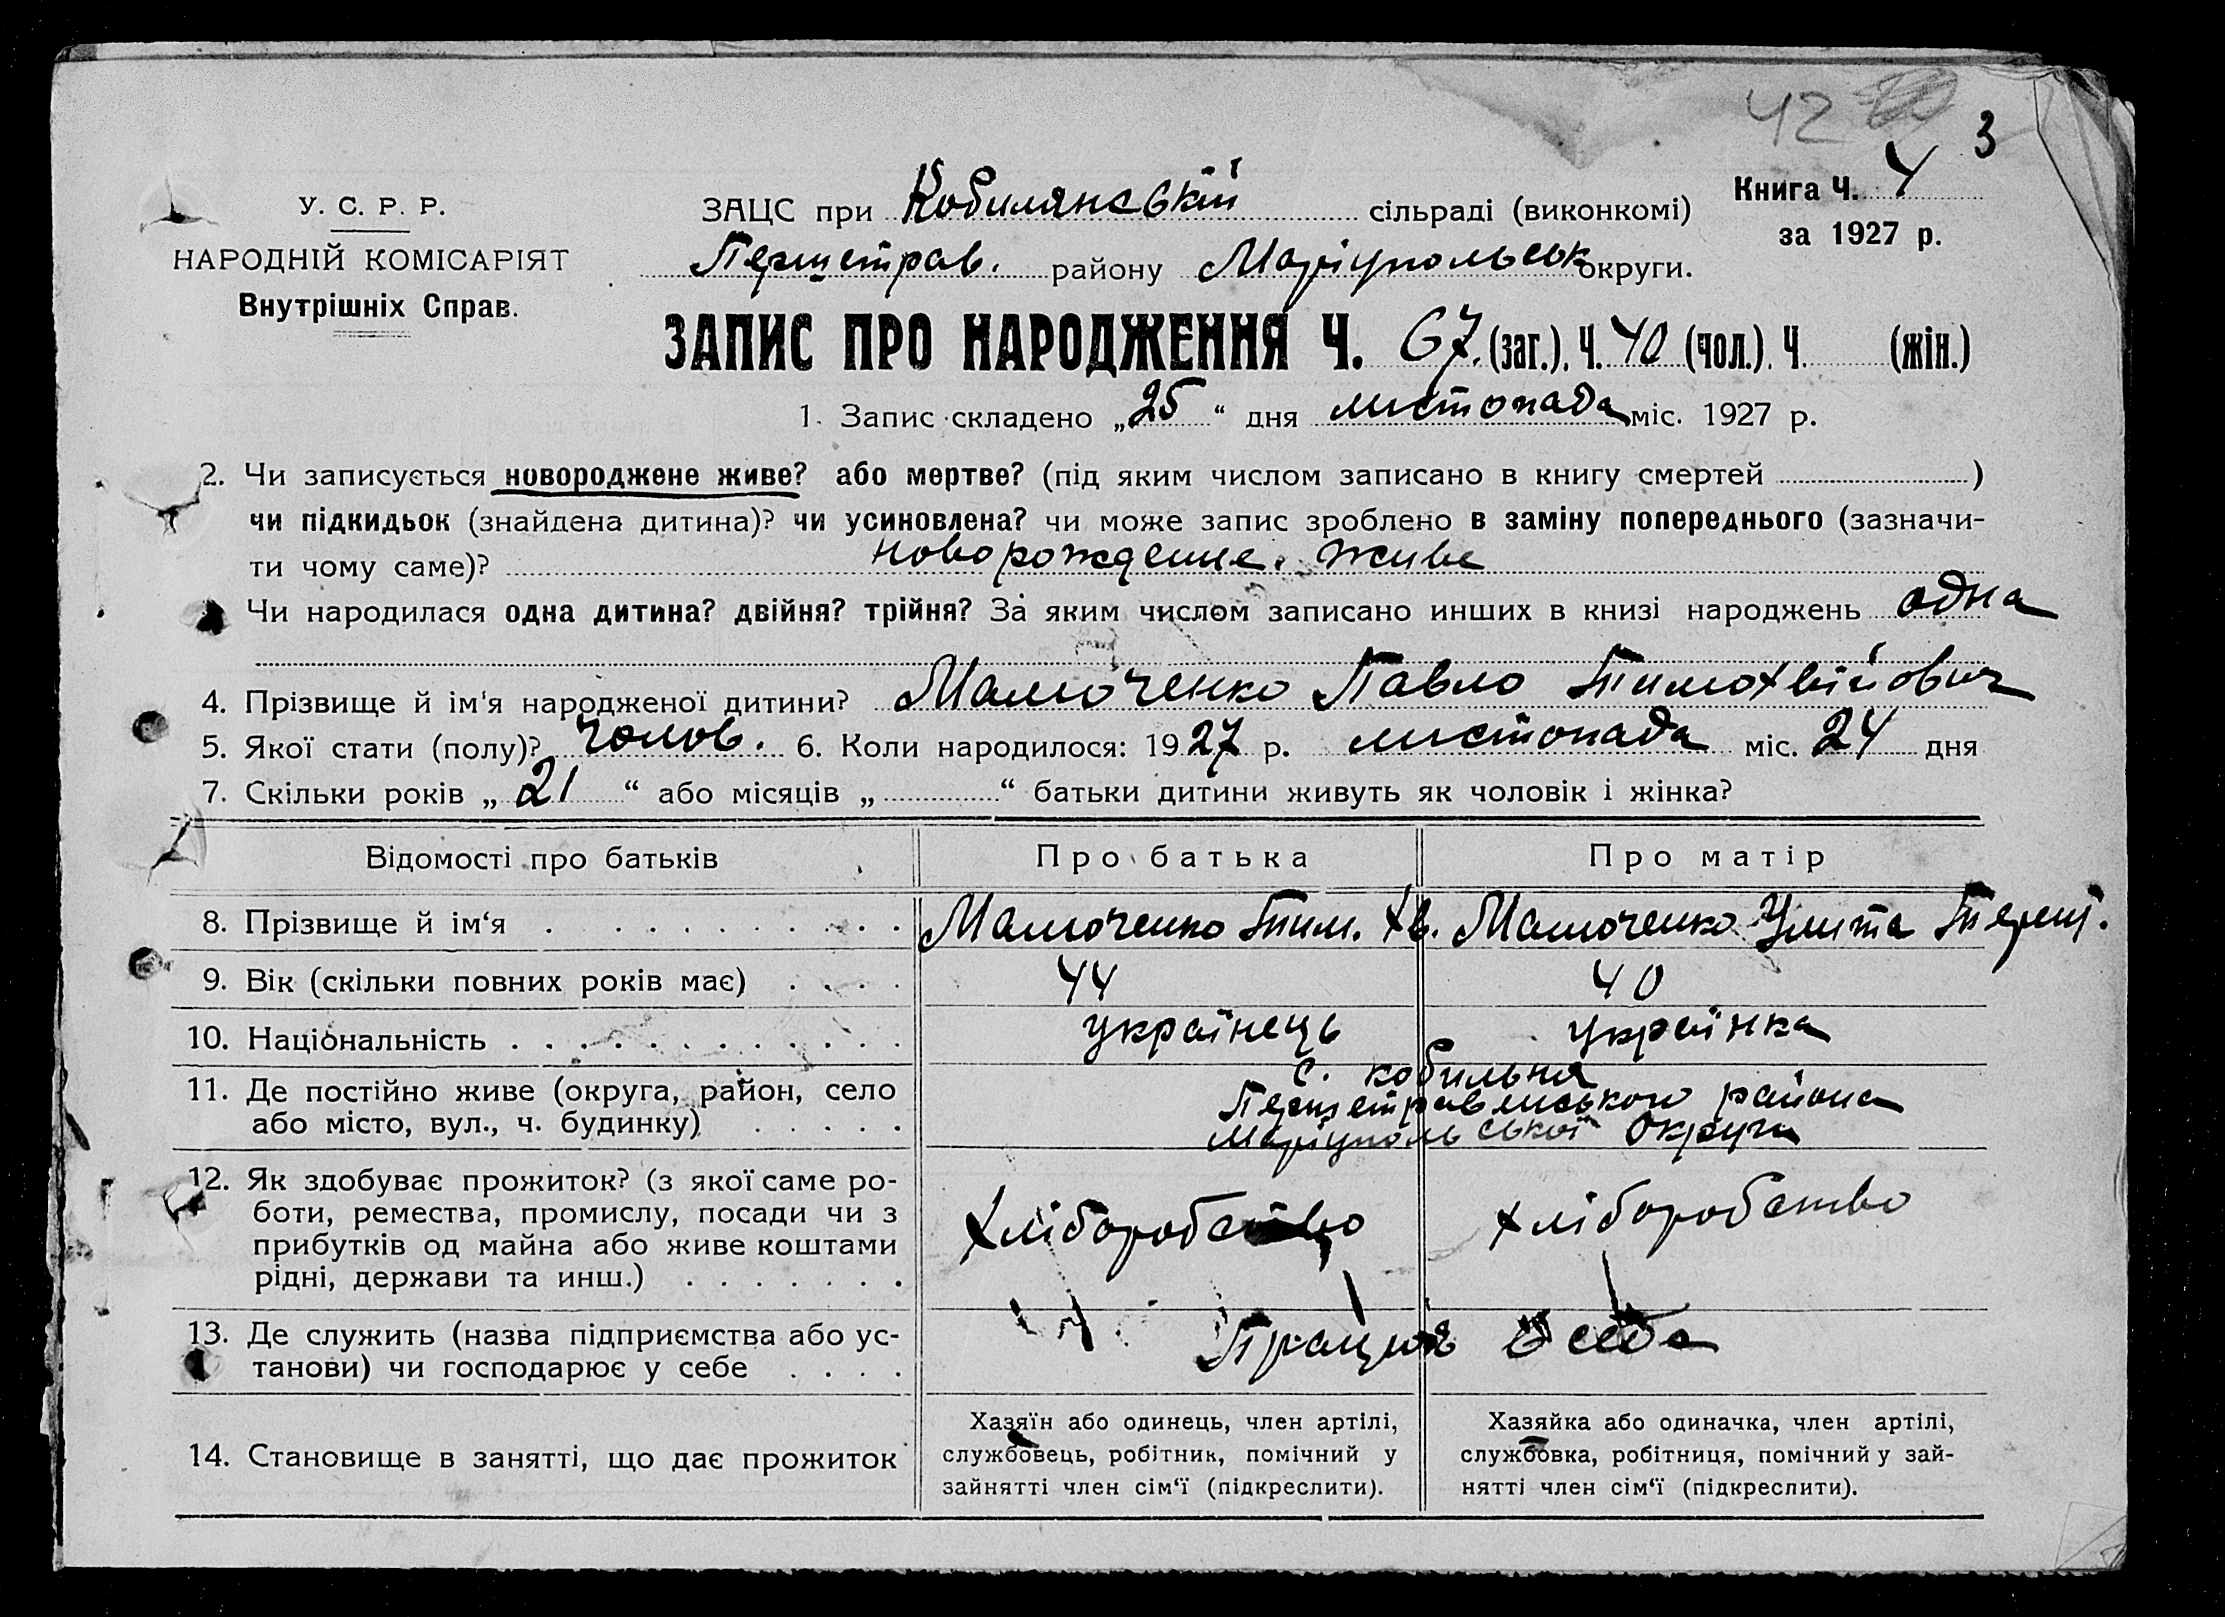 42
3
У. С. Р. Р.
НАРОДНІЙ КОМІСАРІЯТ
Внутрішніх Справ.
ЗАЦС при Кобилянській сільраді (виконкомі)
Першетрав. району Маріупольськ округи.
Книга Ч. 4
за 1927 р.
ЗАПИС ПРО НАРОДЖЕННЯ Ч. 67. (заг.), Ч. 40 (чол.), Ч. (жін.)
1. Запис складено „25“ дня листопада міс. 1927 р.
2. Чи записується новороджене живе? або мертве? (під яким числом записано в книгу смертей )
чи підкидьок (знайдена дитина)? чи усиновлена? чи може запис зроблено в заміну попереднього (зазначи-
ти чому саме)? новорождение. живе
Чи народилася одна дитина? двійня? трійня? За яким числом записано инших в книзі народжень одна
4. Прізвище й ім'я народженої дитини? Малюченко Павло Тимохвійович
5. Якої стати (полу)? чолов. 6. Коли народилося: 1927 р. листопада міс. 24 дня
7. Скільки років „ 21 “ або місяців „ “ батьки дитини живуть як чоловік і жінка?
Відомості про батьків Про батька Про матір
8. Прізвище й ім‘я Малюченко Тим. Хв. Малюченко Улита Терент.
9. Вік (скільки повних років має) 44 40
10. Національність українець українка
11. Де постійно живе (округа, район, село
або місто, вул., ч. будинку)
с. кобильня
Першетравенського района
Маріупольської Округи
12. Як здобуває прожиток? (з якої саме ро-
боти, ремества, промислу, посади чи з
прибутків од майна або живе коштами
рідні, держави та инш.)
хліборобство хліборобство
13. Де служить (назва підприємства або ус-
танови) чи господарює у себе
Працює у себе
14. Становище в занятті, що дає прожиток
Хазяїн або одинець, член артілі,
службовець, робітник, помічний у
зайнятті член сім‘ї (підкреслити).
Хазяйка або одиначка, член артілі,
службовка, робітниця, помічний у зай-
нятті член сім‘ї (підкреслити).